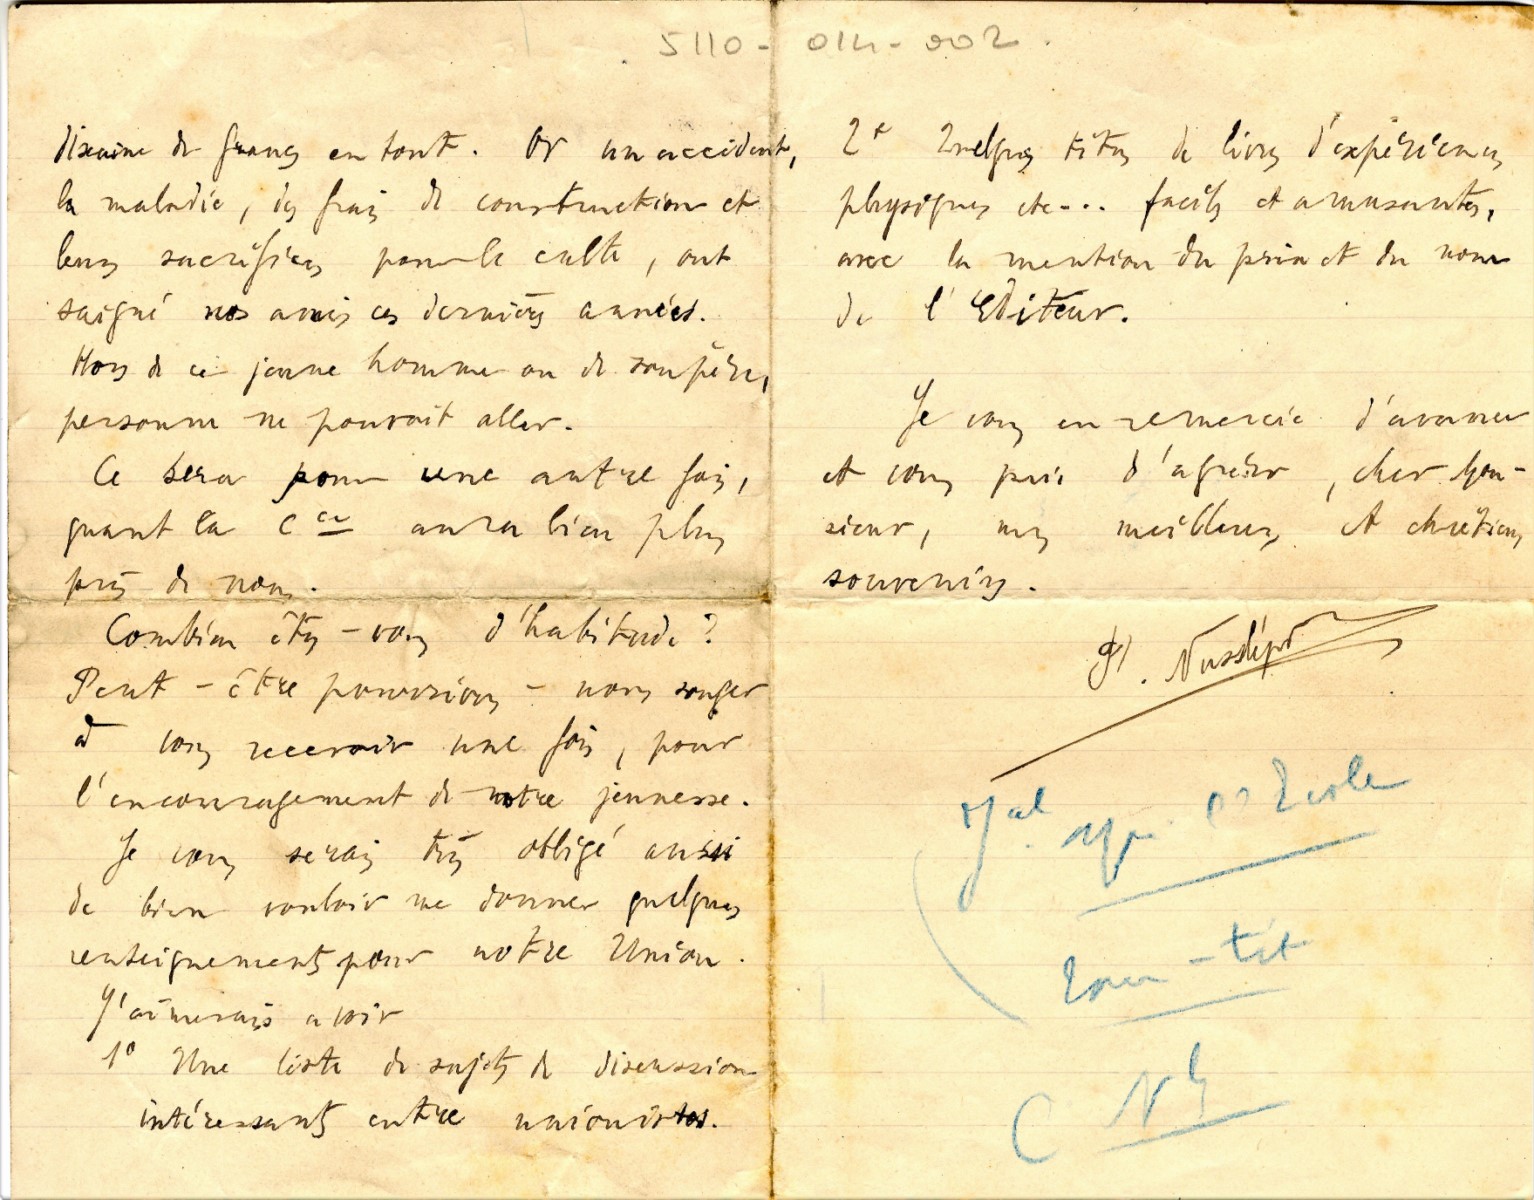 5110-014-002.
dixaine de francs en tout. Or un accident,
la maladie, des frais de construction et
leurs sacrifices pour le culte, ont
saigné nos amis ces dernières années.
Hors de ce jeune homme ou de son père,
personne ne pouvait aller.
Ce sera pour une autre fois,
quant la Cce aura lieu plus
près de nous.
Combien êtes-vous d'habitude?
Peut-être pourrions-nous songer
à vous recevoir une fois, pour
l'encouragement de notre jeunesse.
Je vous serais très obligé aussi
de bien vouloir me donner quelques
renseignements pour notre Union.
J'aimerais avoir
1° Une liste de sujets de discussion
intéressants entre unionistes.
2e Quelques titres de livres d'expériences
physiques etc... faciles et amusantes,
avec la mention du prix et du nom
de l'Editeur.
Je vous en remercie d'avance
et vous prie d'agréer, cher Mon-
sieur, mes meilleurs et chrétiens
souvenirs.